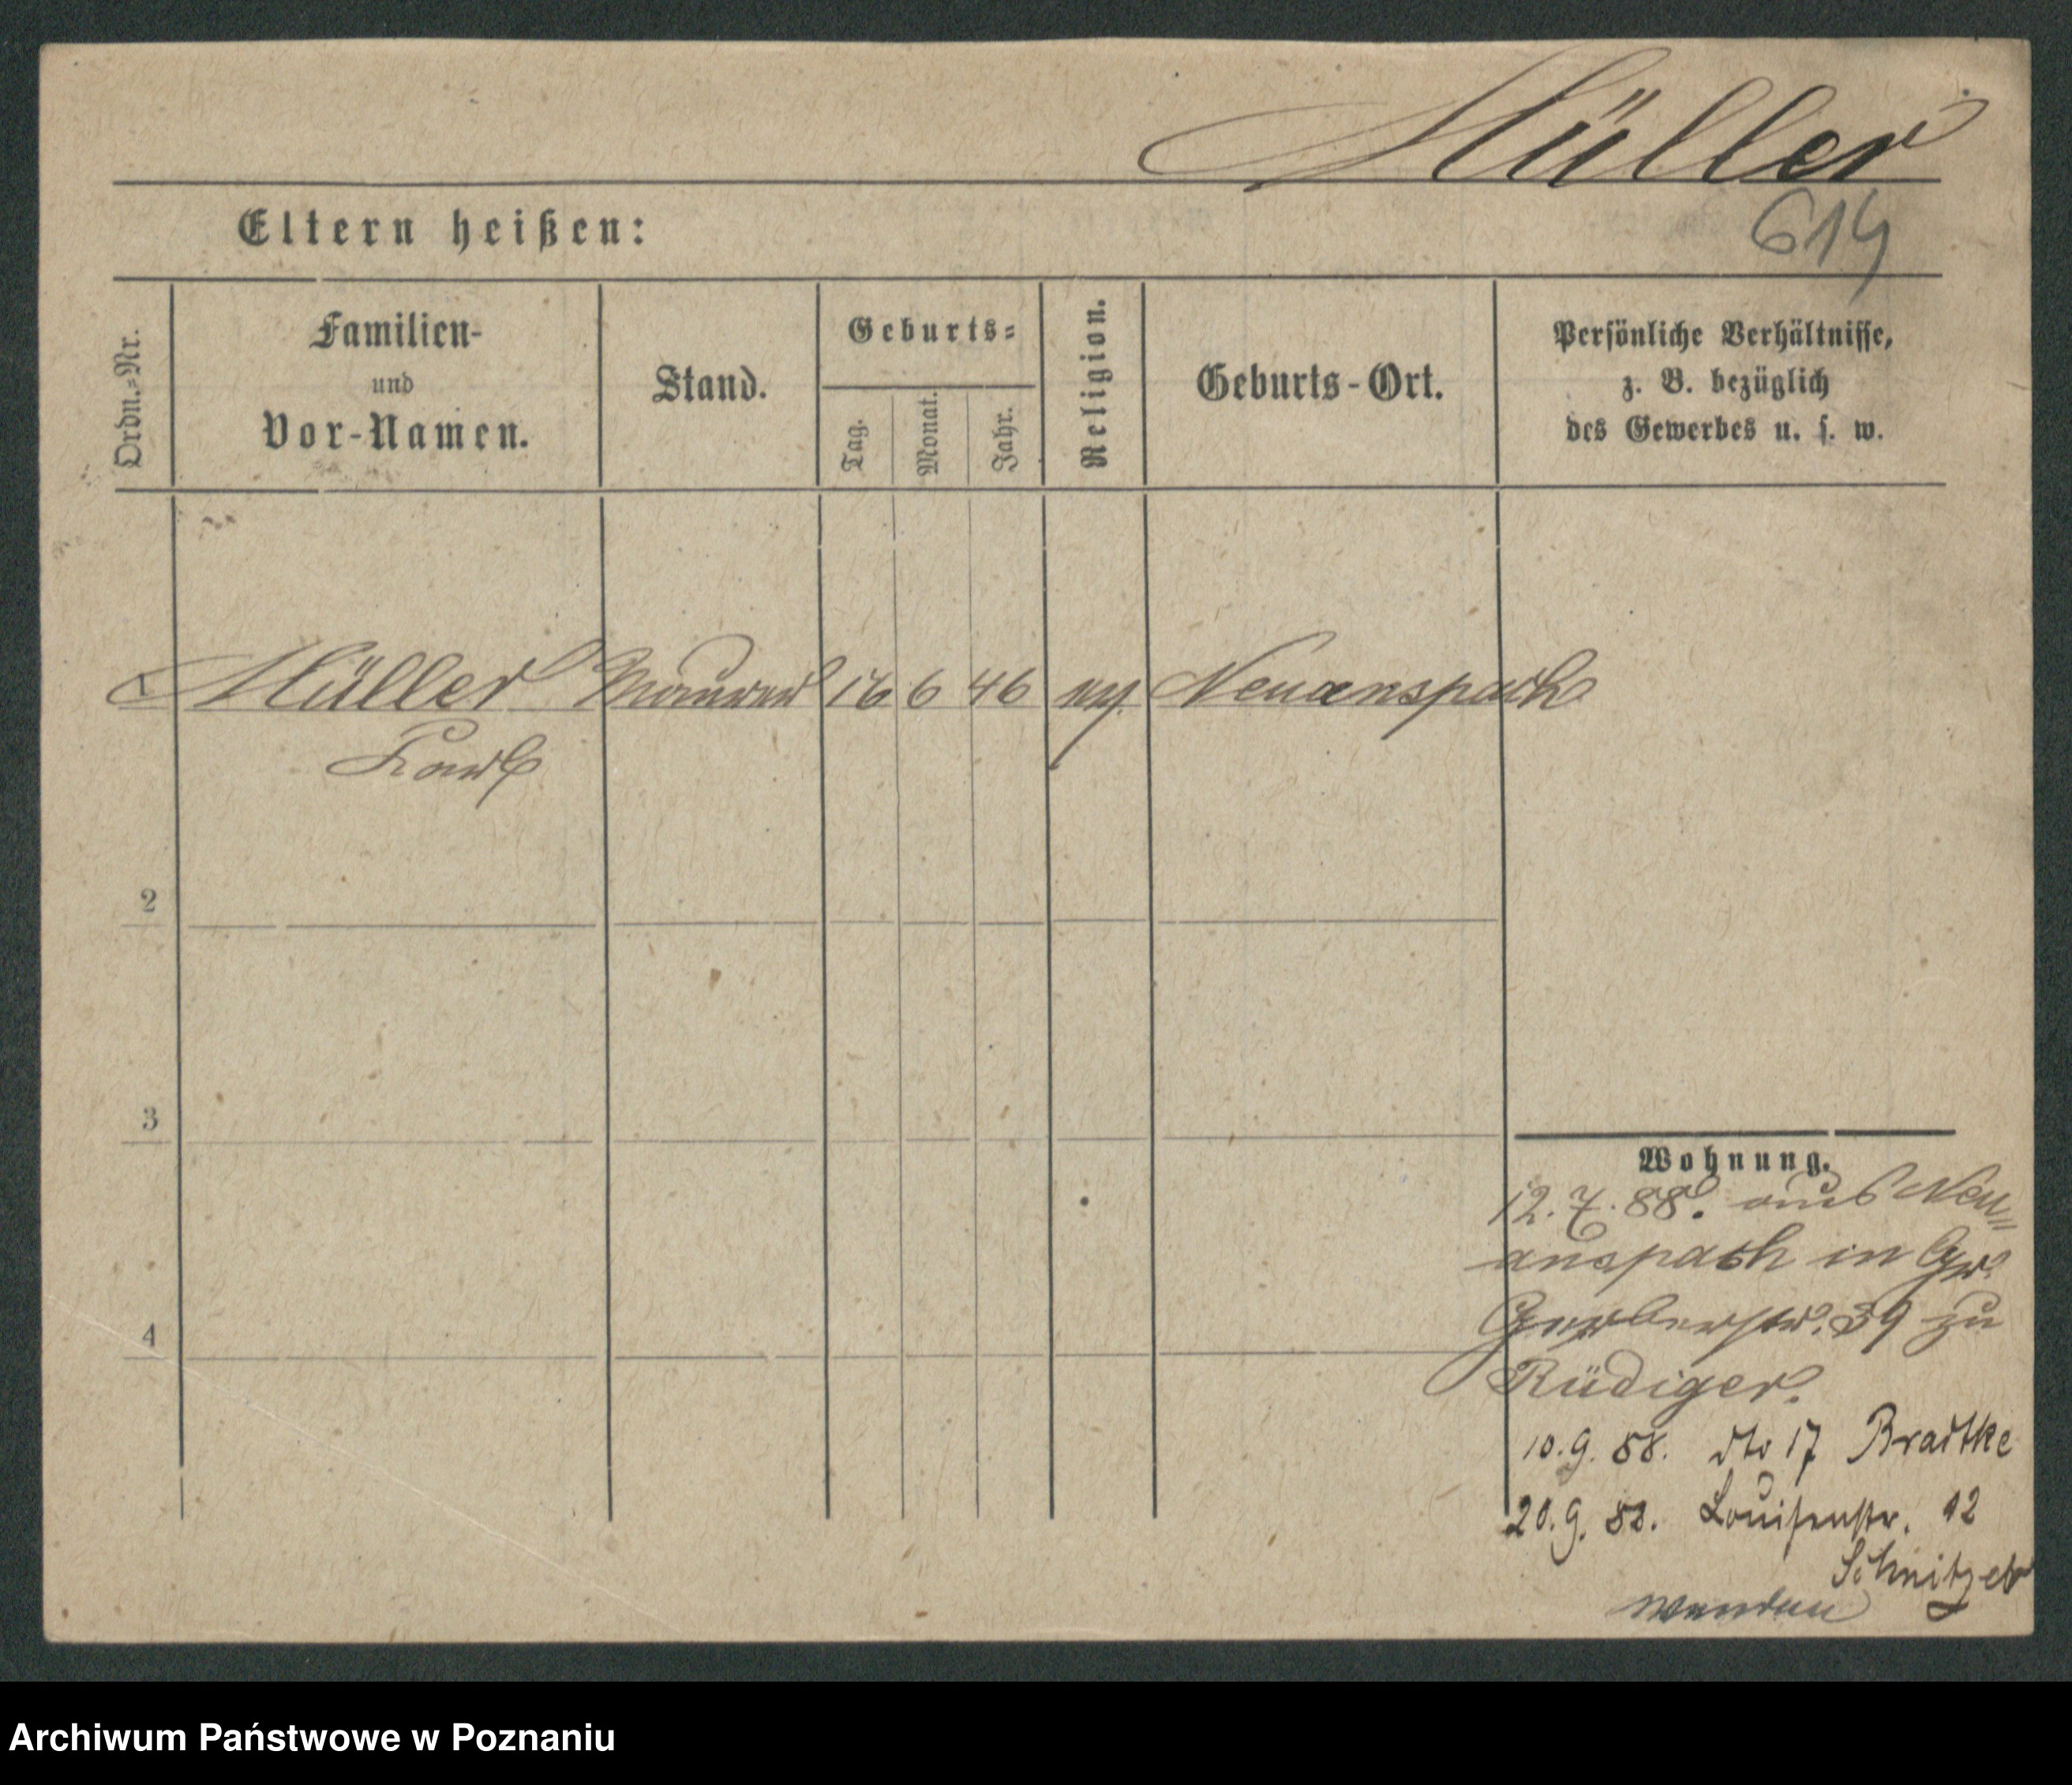 Müller
614
Eltern heißen:
Ordn.-Nr.
Familien-
und
Vor-Namen.
Stand.
Geburts-
Tag.
Monat.
Jahr.
Religion.
Geburts-Ort.
Persönliche Verhältnisse,
z. B. bezüglich
des Gewerbes u. s. w.
1 Müller Maurer 16 6 46 ev. Neuanspach
Karl
2
3
4
Wohnung.
12.7.88. aus Neu=
anspach in Gr.
Gerberstr. 39 zu
Rüdiger.
10.9.88. dto 17 Bradtke
20.9.88. Louisenstr. 12
Schnitzer
wenden
Archiwum Państwowe w Poznaniu